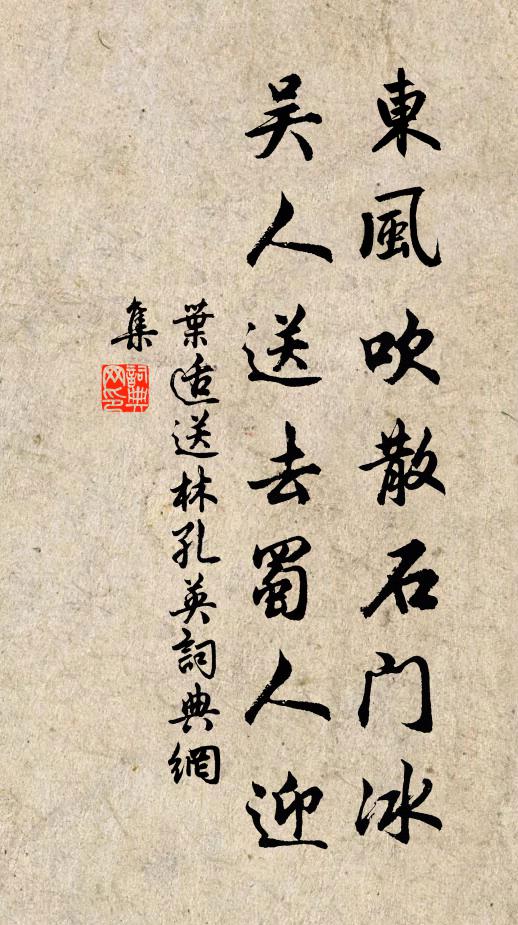 東風吹散石门冰
吴人送去蜀人迎
葉适送林孔英詞典網
集
詞典網印